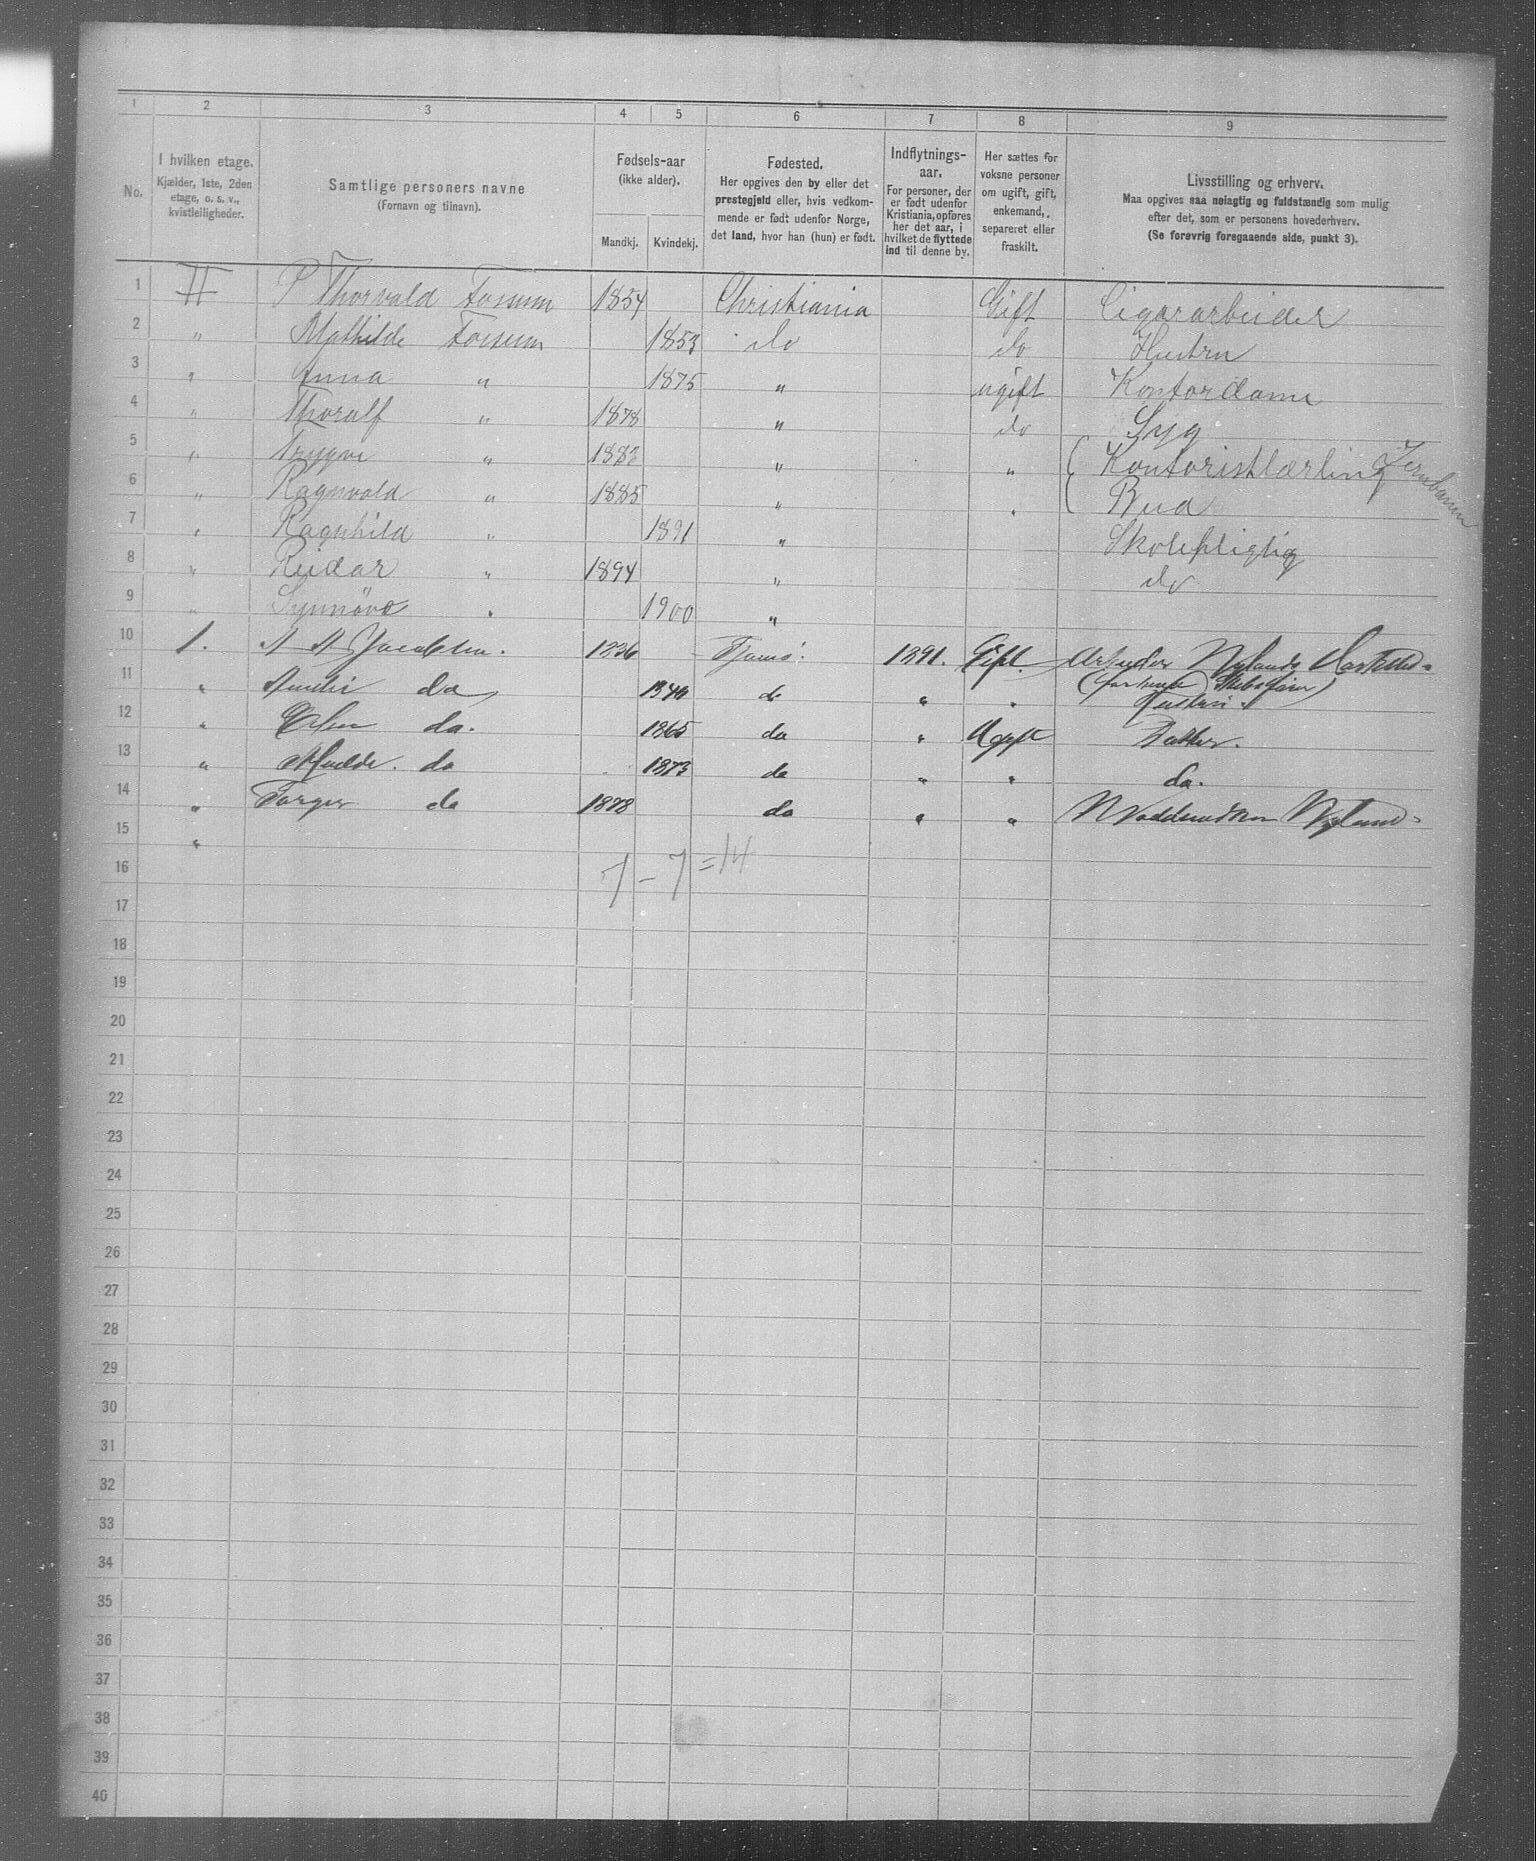 1 2 3 4 5 6 7 8 9
No.
I hvilken etage.
Kjælder, 1ste, 2den
etage, o. s. v.,
kvistleiligheder.
Samtlige personers navne
(Fornavn og tilnavn).
Fødsels-aar
(ikke alder).
Mandkj. Kvindekj.
Fødested.
Her opgives den by eller det
prestegjeld eller, hvis vedkom-
mende er født udenfor Norge,
det land, hvor han (hun) er født.
Indflytnings-
aar.
For personer, der
er født udenfor
Kristiania, opføres
her det aar, i
hvilket de flyttede
ind til denne by.
Her sættes for
voksne personer
om ugift, gift,
enkemand,
separeret eller
fraskilt.
Livsstilling og erhverv.
Maa opgives saa nøiagtig og fuldstændig som mulig
efter det, som er personens hovederhverv.
(Se forøvrig foregaaende side, punkt 3).
1 II P Thorvald Fossum 1854 Christiania Gift Cigararbeider
2 " Mathilde Fossum 1853 do do Hustru
3 " Anna " 1875 " ugift Kontordame
4 " Thoralf " 1878 " do Syg
5 " Trygve " 1883 " " Kontoristlærling Jernbanen
6 " Ragnvald " 1885 " " Bud
7 " Ragnhild " 1891 " Skolepligtig
8 " Reidar " 1894 " do
9 " Synnøve " 1900 "
10 1. A A Jacobsen. 1836 Tjømø. 1891. Gift Arbeider Nylands
11 " do 1840 do " "
12 " do. 1865 do " Ugift
13 " do 1873 do " " do.
14 " Torger do 1878 do " " Nyland
15 "
7 - 7 = 14
16
17
18
19
20
21
22
23
24
25
26
27
28
29
30
31
32
33
34
35
36
37
38
39
40